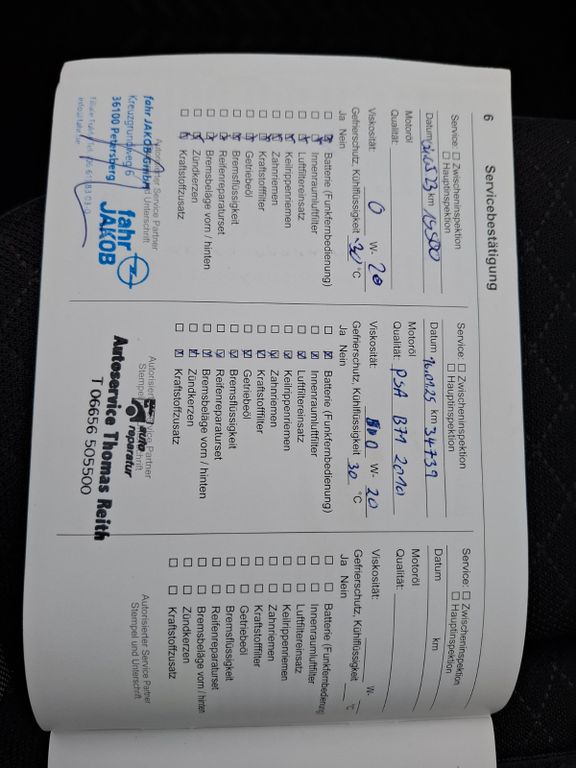 6
Servicebestätigung
Service: ☐ Zwischeninspektion
☐ Hauptinspektion
Datum km 15500
Motoröl
Qualität:
Viskosität: 0 W- 20
Gefrierschutz, Kühlflüssigkeit -30 °C
Ja Nein
Batterie (Funkfernbedienung)
Innenraumluftfilter
Luftfiltereinsatz
Keilrippenriemen
Zahnriemen
Kraftstofffilter
Getriebeöl
Bremsflüssigkeit
Reifenreparaturset
Bremsbeläge vorn / hinten
Zündkerzen
Kraftstoffzusatz
Autorisierter Service Partner
Unterschrift
fahr JAKOB GmbH
Kreuzgrundweg 6
36100 Petersberg
fahr
JAKOB
Service: ☐ Zwischeninspektion
☐ Hauptinspektion
Datum 16.01.25 km 34739
Motoröl
Qualität: PSA B71 2010
Viskosität: 0 W- 20
Gefrierschutz, Kühlflüssigkeit 30 °C
Ja Nein
Batterie (Funkfernbedienung)
Innenraumluftfilter
Luftfiltereinsatz
Keilrippenriemen
Zahnriemen
Kraftstofffilter
Getriebeöl
Bremsflüssigkeit
Reifenreparaturset
Bremsbeläge vorn / hinten
Zündkerzen
Kraftstoffzusatz
Service Partner
auto
reparatur
Autoservice Thomas Reith
T 06656 505500
Service: ☐ Zwischeninspektion
☐ Hauptinspektion
Datum km
Motoröl
Qualität:
Viskosität: W-
Gefrierschutz, Kühlflüssigkeit °C
Ja Nein
☐ ☐ Batterie (Funkfernbedienung)
☐ ☐ Innenraumluftfilter
☐ ☐ Luftfiltereinsatz
☐ ☐ Keilrippenriemen
☐ ☐ Zahnriemen
☐ ☐ Kraftstofffilter
☐ ☐ Getriebeöl
☐ ☐ Bremsflüssigkeit
☐ ☐ Reifenreparaturset
☐ ☐ Bremsbeläge vorn / hinten
☐ ☐ Zündkerzen
☐ ☐ Kraftstoffzusatz
Autorisierter Service Partner
Stempel und Unterschrift